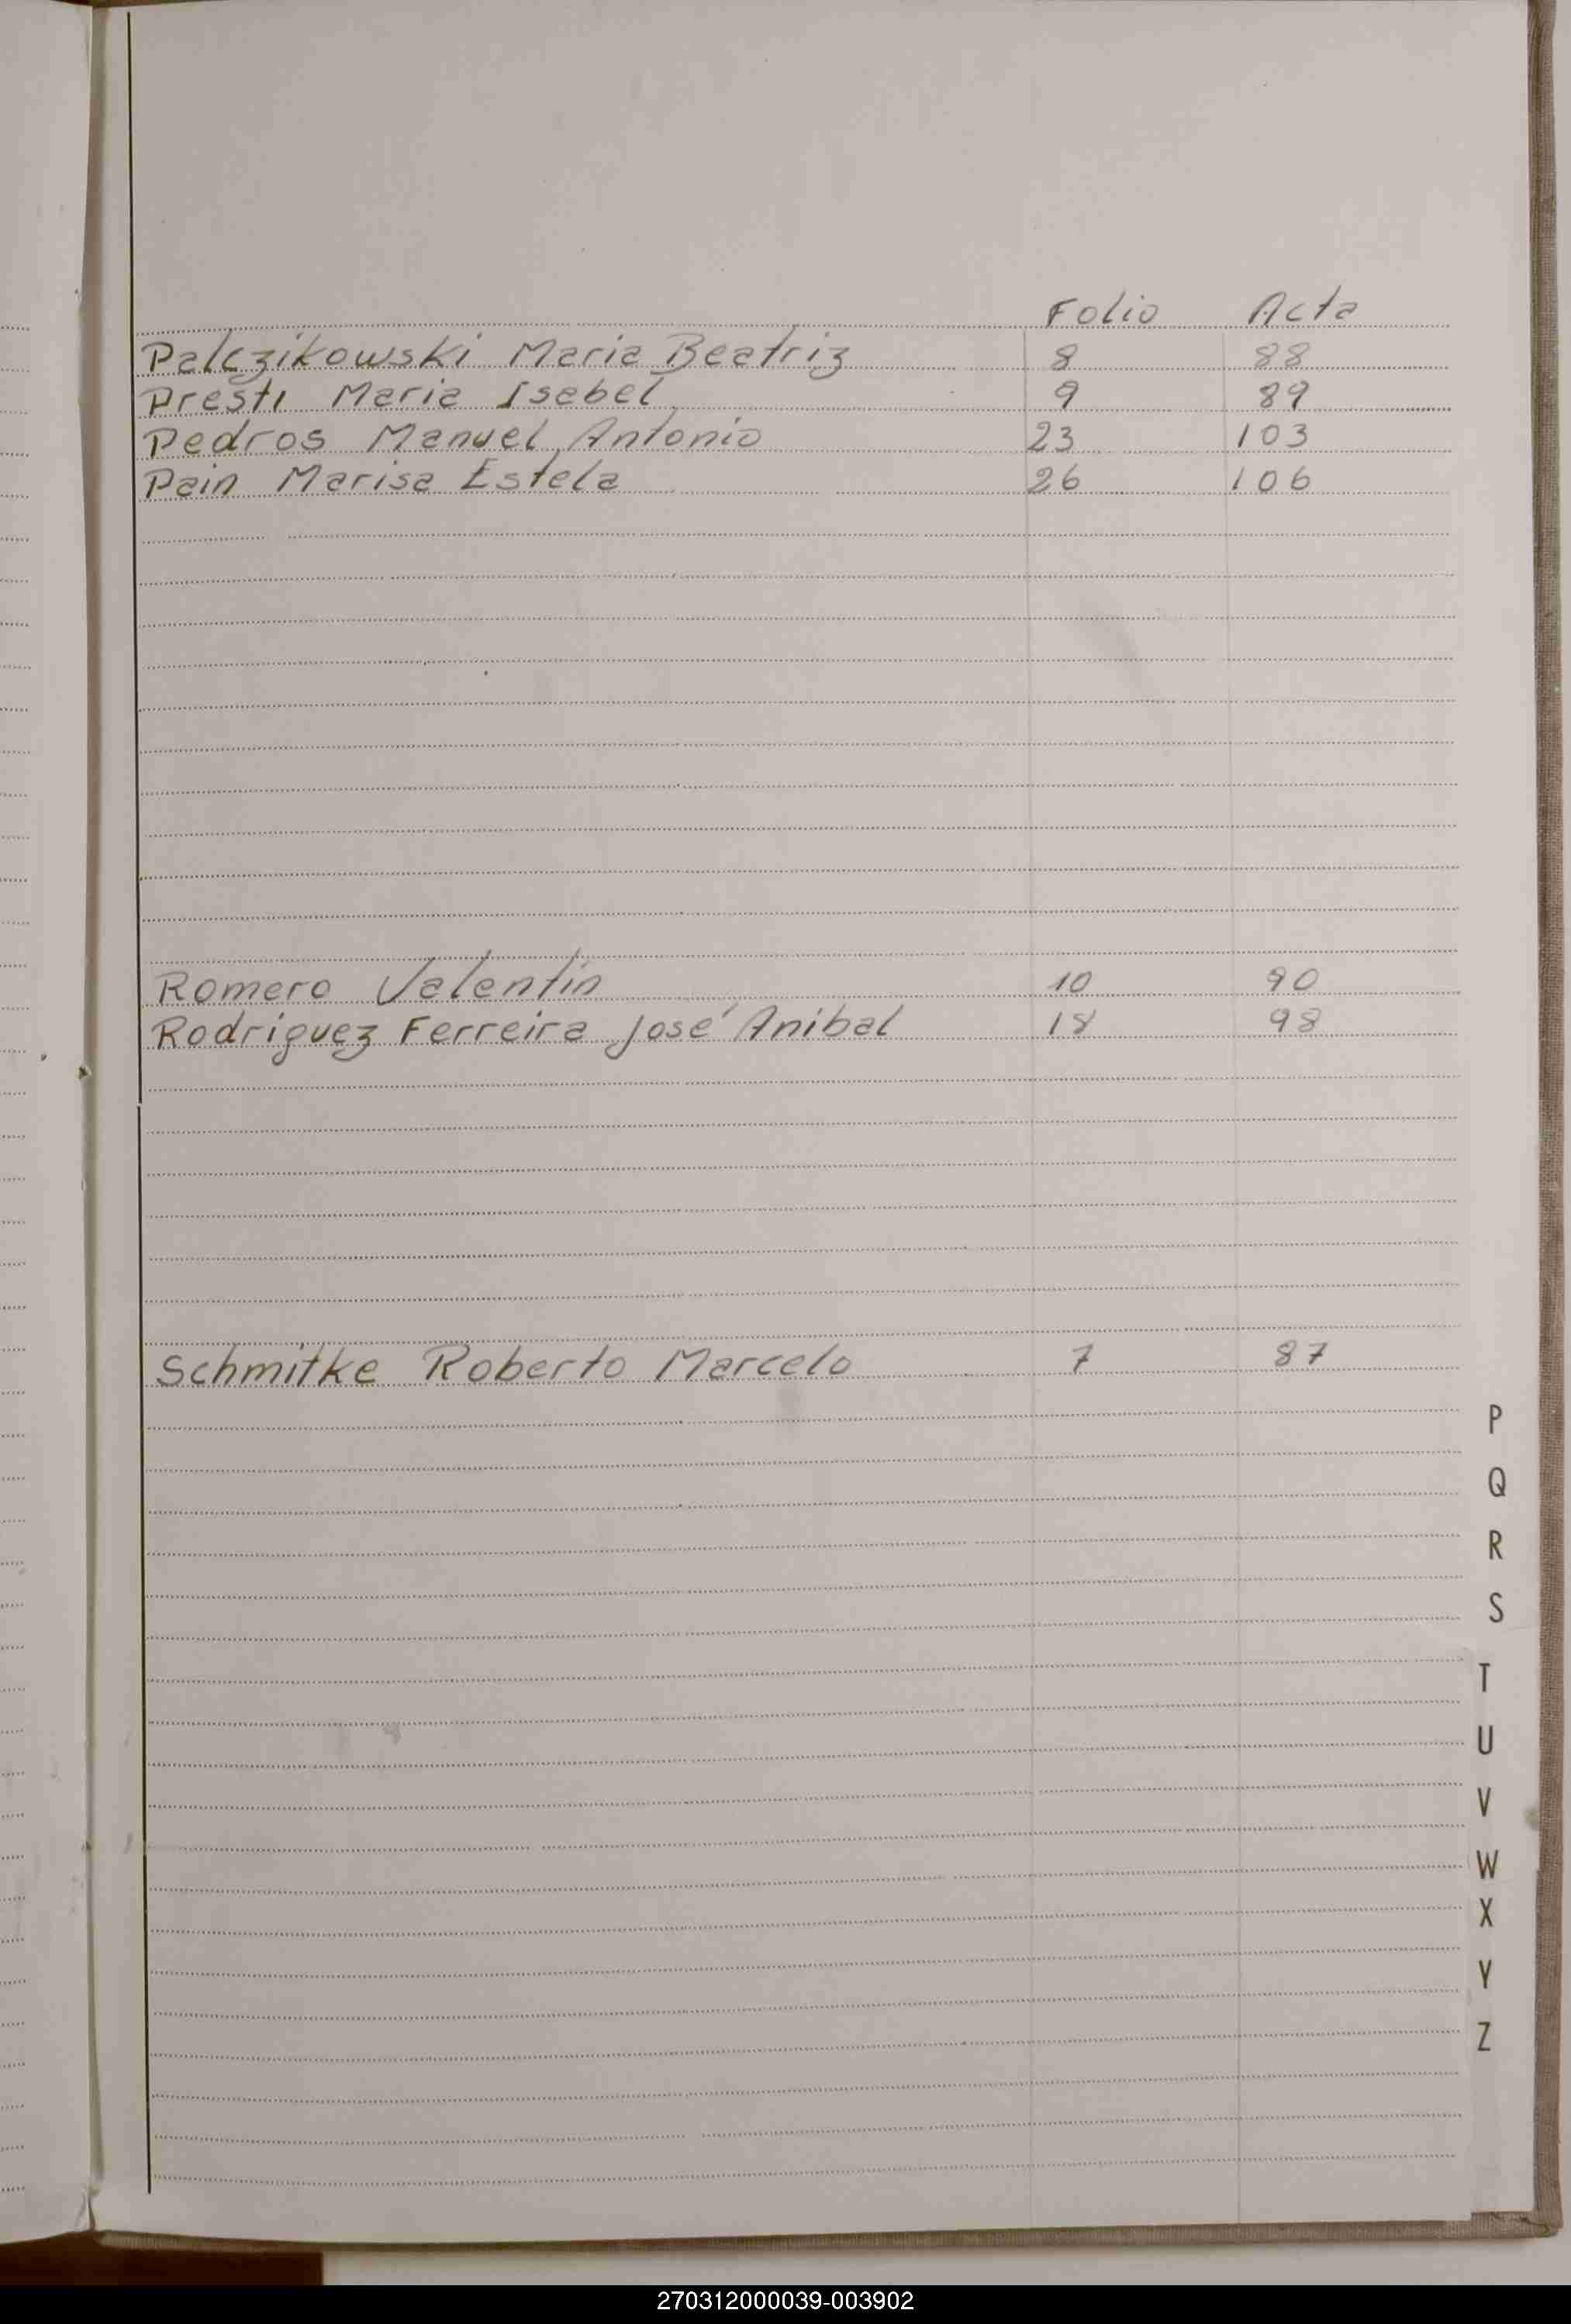 Folio Acta
Palczikowski Maria Beatriz 8 88
Presti Maria Isabel 9 89
Pedros Manuel Antonio 23 103
Pain Marisa Estela 26 106
Romero Valentín 10 90
Rodriguez Ferreira José Anibal 18 98
Schmitke Roberto Marcelo 7 87
P
Q
R
S
T
U
V
W
X
Y
Z
270312000039-003902